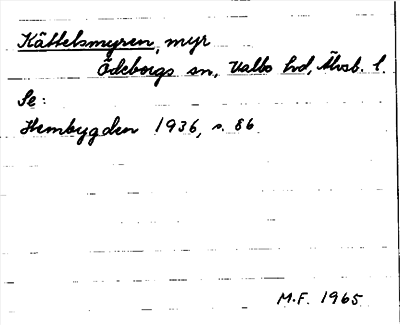 Kättelsmyren, myr
Ödeborgs sn, Valbo hd, Älvsb. l.
Se:
Hembygden 1936, s. 86
M.F. 1965